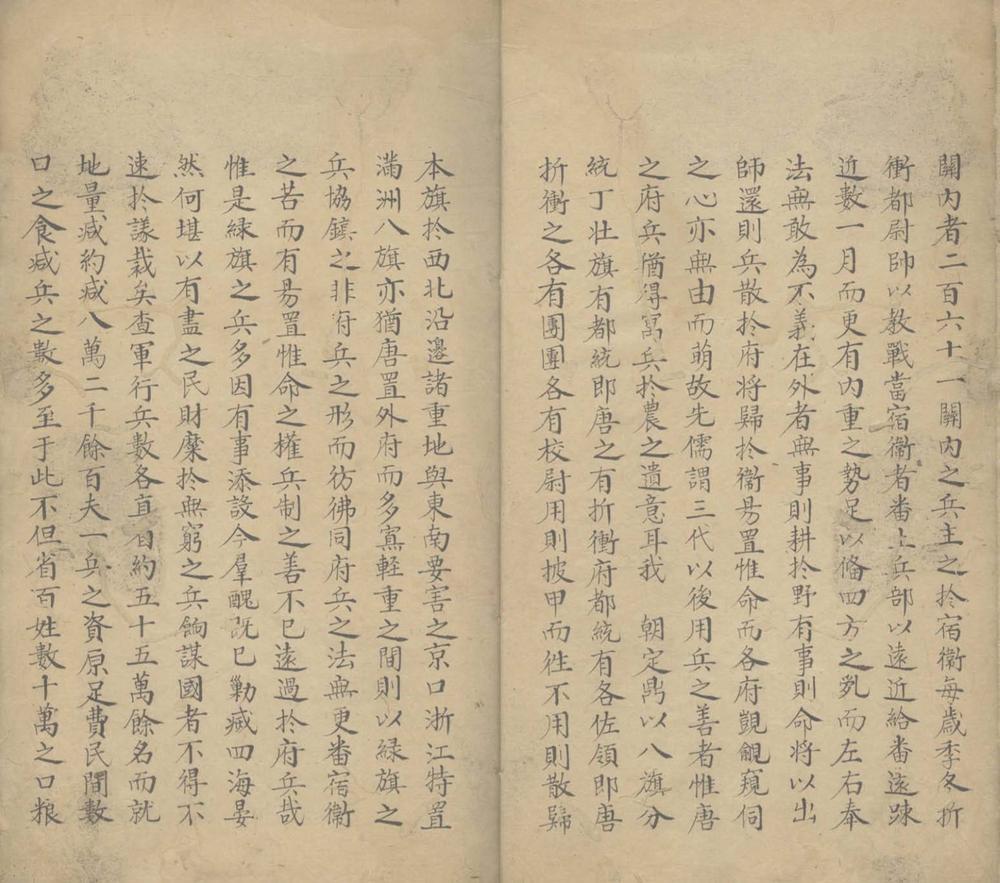 關内者二百六十一關内之兵主之於宿衞每歲季冬折
衝都尉帥以教戰當宿衞者番上兵部以遠近給番遠踈
近數一月而更有内重之勢足以俻四方之亂而左右奉
法無敢為不義在外者無事則耕於野有事則命將以出
師還則兵散於府將歸於衞昜置惟命而各府覬覦窺伺
之心亦無由而萌故先儒謂三代以後用兵之善者惟唐
之府兵猶得寓兵於農之遺意耳我　朝定鼎以八旗分
統丁壯旗有都統即唐之有折衝府都統有各佐領即唐
折衝之各有團團各有校尉用則披甲而徃不用則散歸
本旗於西北沿邊諸重地與東南要害之京口浙江特置
滿洲八旗亦猶唐置外府而多寡輕重之間則以緑旗之
兵協鎮之非府兵之形而彷彿同府兵之法無更番宿衞
之苦而有昜置惟命之權兵制之善不已遠過於府兵哉
惟是緑旗之兵多因有事添設今羣醜既已勦蕆四海晏
然何堪以有盡之民財糜於無窮之兵餉謀國者不得不
速於議裁矣查軍行兵數各直省約五十五萬餘名而就
地量减約减八萬二千餘百夫一兵之資原足費民間數
口之食减兵之數多至于此不但省百姓數十萬之口粮